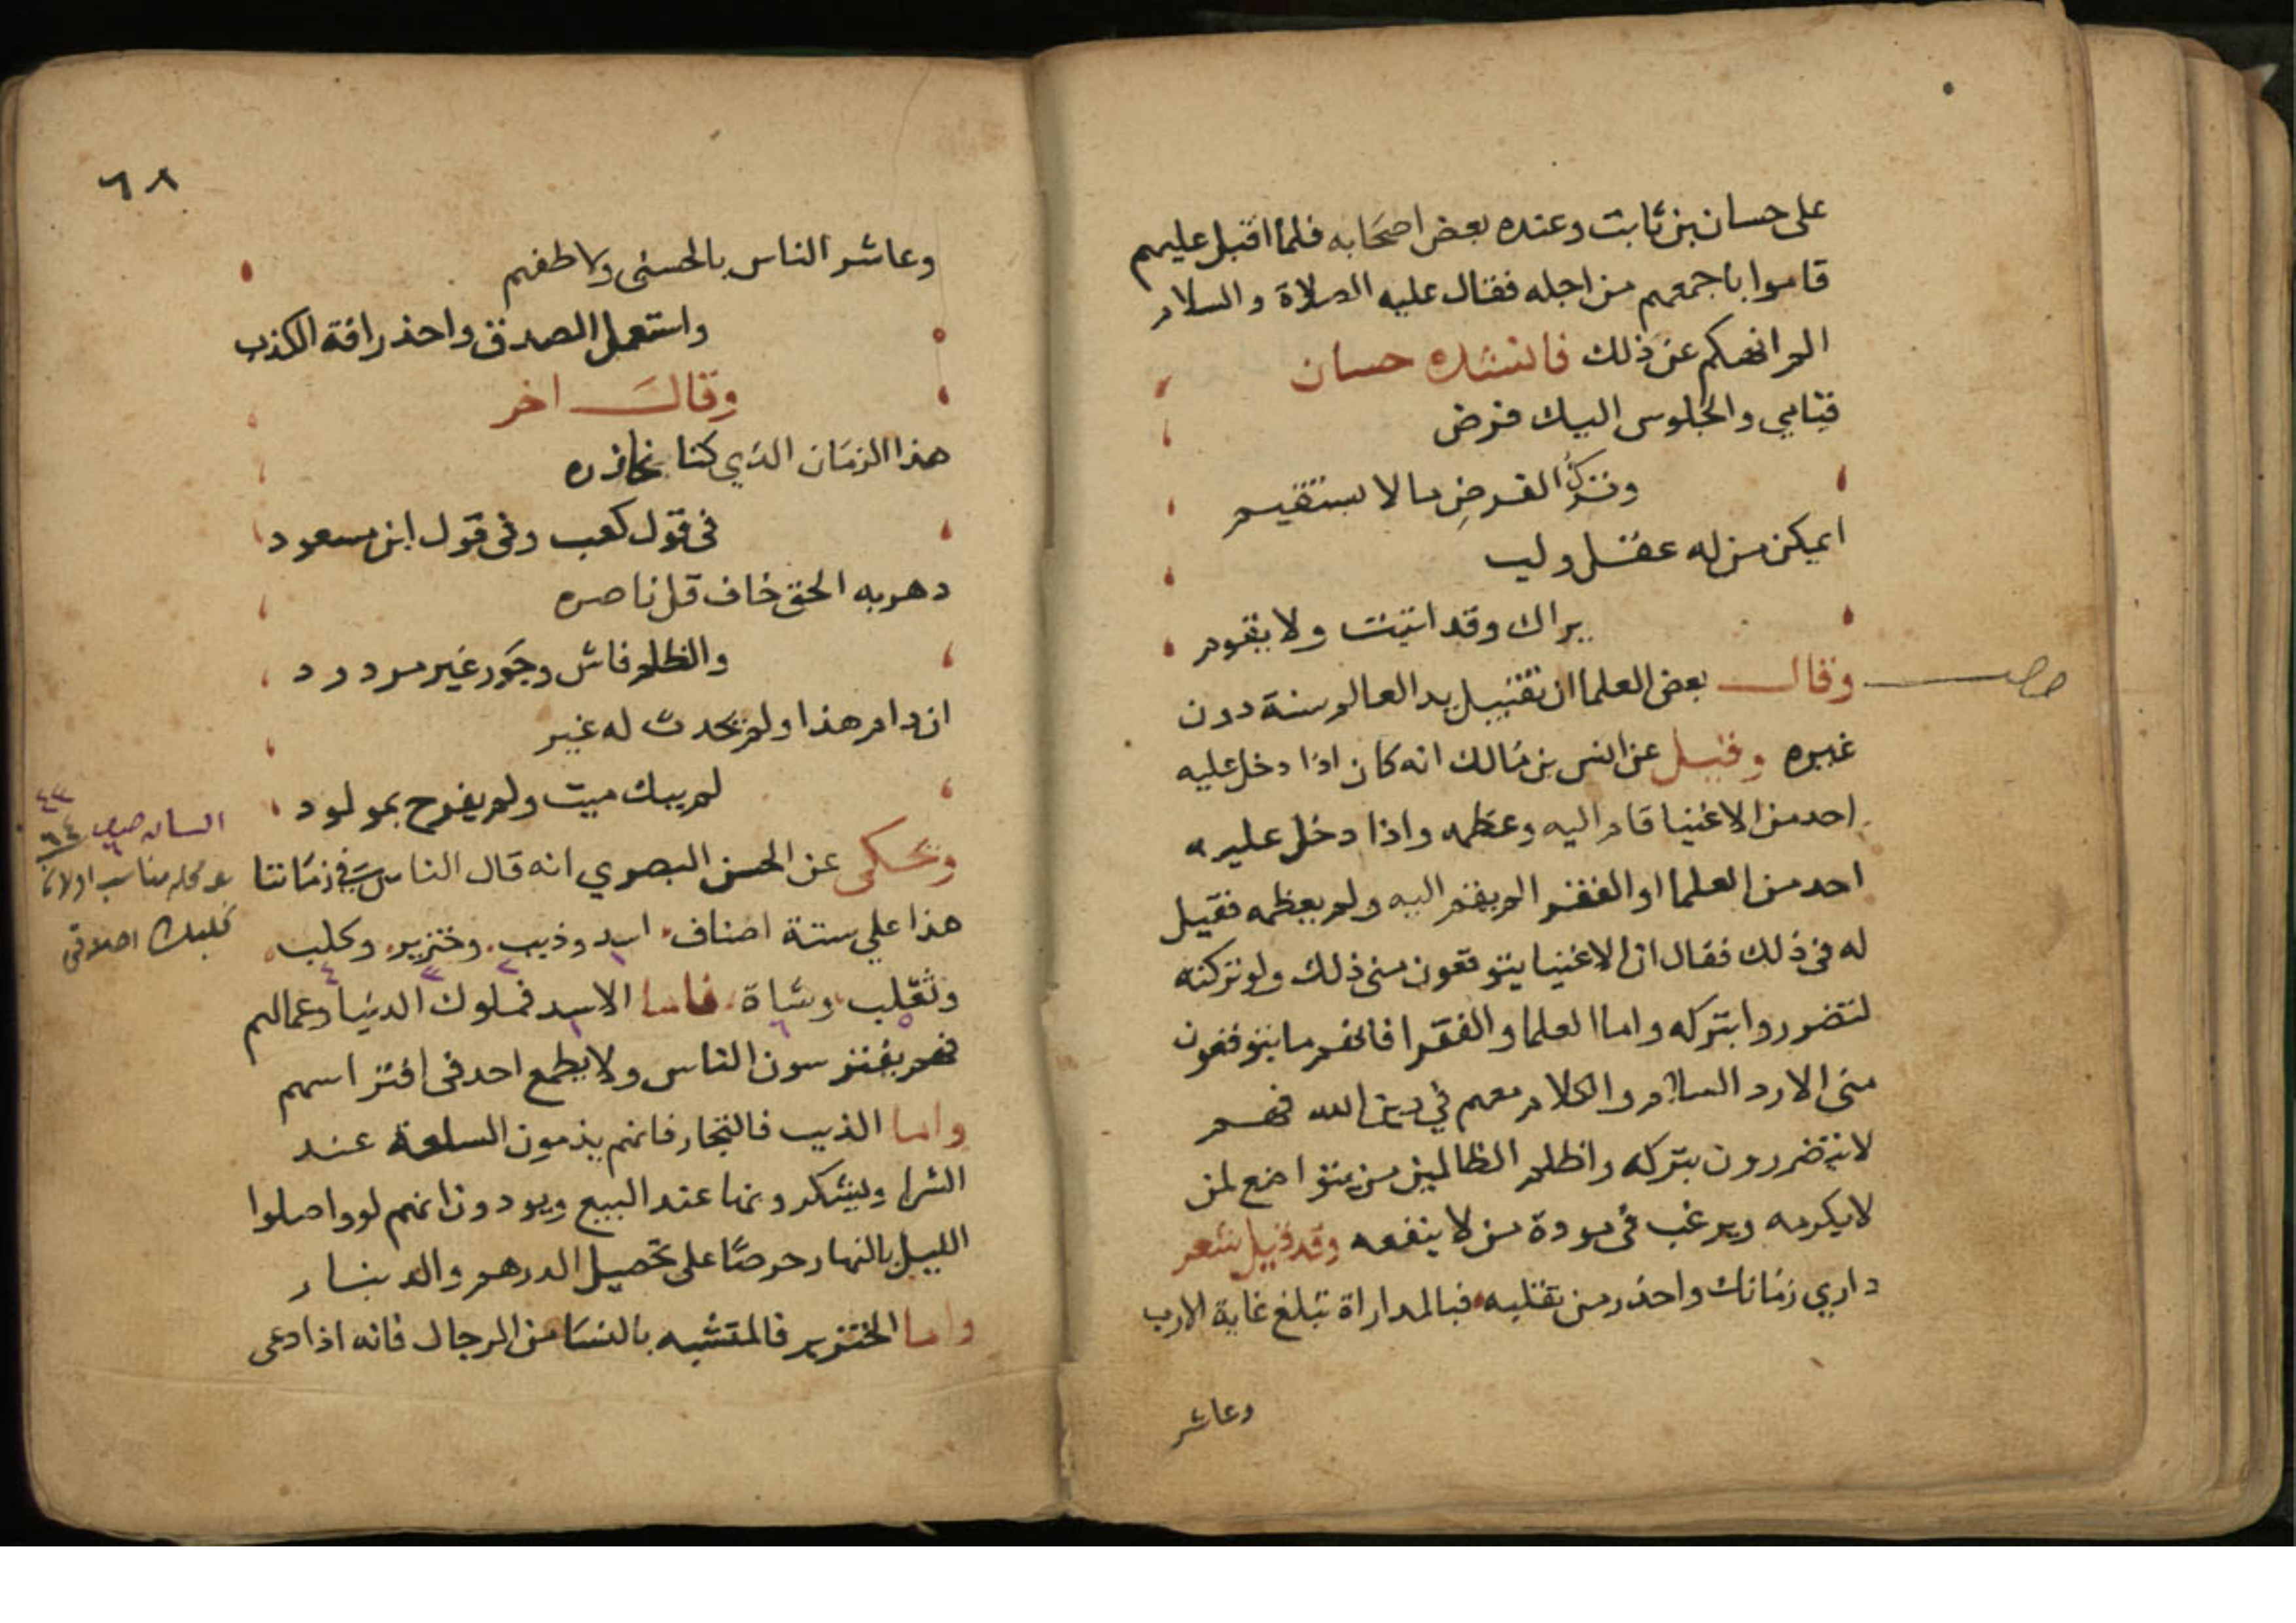 على حسان بن ثابت وعنده بعض اصحابه فلما اقبل عليهم
قاموا باجمعهم من اجله فقال عليه الصلاة والسلام
الم انهكم عن ذلك فانشده حسان
قيامي والجلوس اليك فرض
وترك الفرض ما لا يستقيم
ايمكن من له عقل ولب
يراك وقد اتيت ولا يقوم
وقال بعض العلما ان تقبيل يد العالم سنة دون
غيره وقيل عن انس بن مالك انه كان اذا دخل عليه
احد من الاغنيا قام اليه وعظمه واذا دخل عليه
احد من العلما او الفقر الم يقم اليه ولم يعظمه فقيل
له في ذلك فقال ان الاغنيا يتوقعون مني ذلك ولو تركته
لتضرروا بتركه واما العلما والفقرا فانهم ما يتوقعون
مني الا رد السلام والكلام معهم في دين الله فهم
لا يتضررون بتركه واظلم الظالمين من يتواضع لمن
لا يكرمه ويرغب في مودة من لا ينفعه وقد قيل شعر
داري زمانك واحذر من تقلبه فبالمداراة تبلغ غاية الارب
وعاشر
٦٨
وعاشر الناس بالحسنى ولاطفهم
واستعمل الصدق واحذر افة الكذب
وقال اخر
هذا الزمان الذي كنا نحاذره
في قول كعب وفي قول ابن مسعود
دهر به الحق خاف قل ناصره
والظلم فاش وجور غير مردود
ان دام هذا ولم يحدث له غير
لم يبك ميت ولم يفرح بمولود
ويحكى عن الحسن البصري انه قال الناس في زماننا
هذا علي ستة اصناف اسد وذيب وخنزير وكلب
وثعلب وشاة فاما الاسد فملوك الدنيا وعمالهم
فهم يفترسون الناس ولا يطمع احد في افتراسهم
واما الذيب فالتجار فانهم يذمون السلعة عند
الشرا ويشكرونها عند البيع ويودون انهم لو واصلوا
الليل بالنهار حرصا على تحصيل الدرهم والدينار
واما الخنزير فالمتشبه بالنسا من الرجال فانه اذا دعى